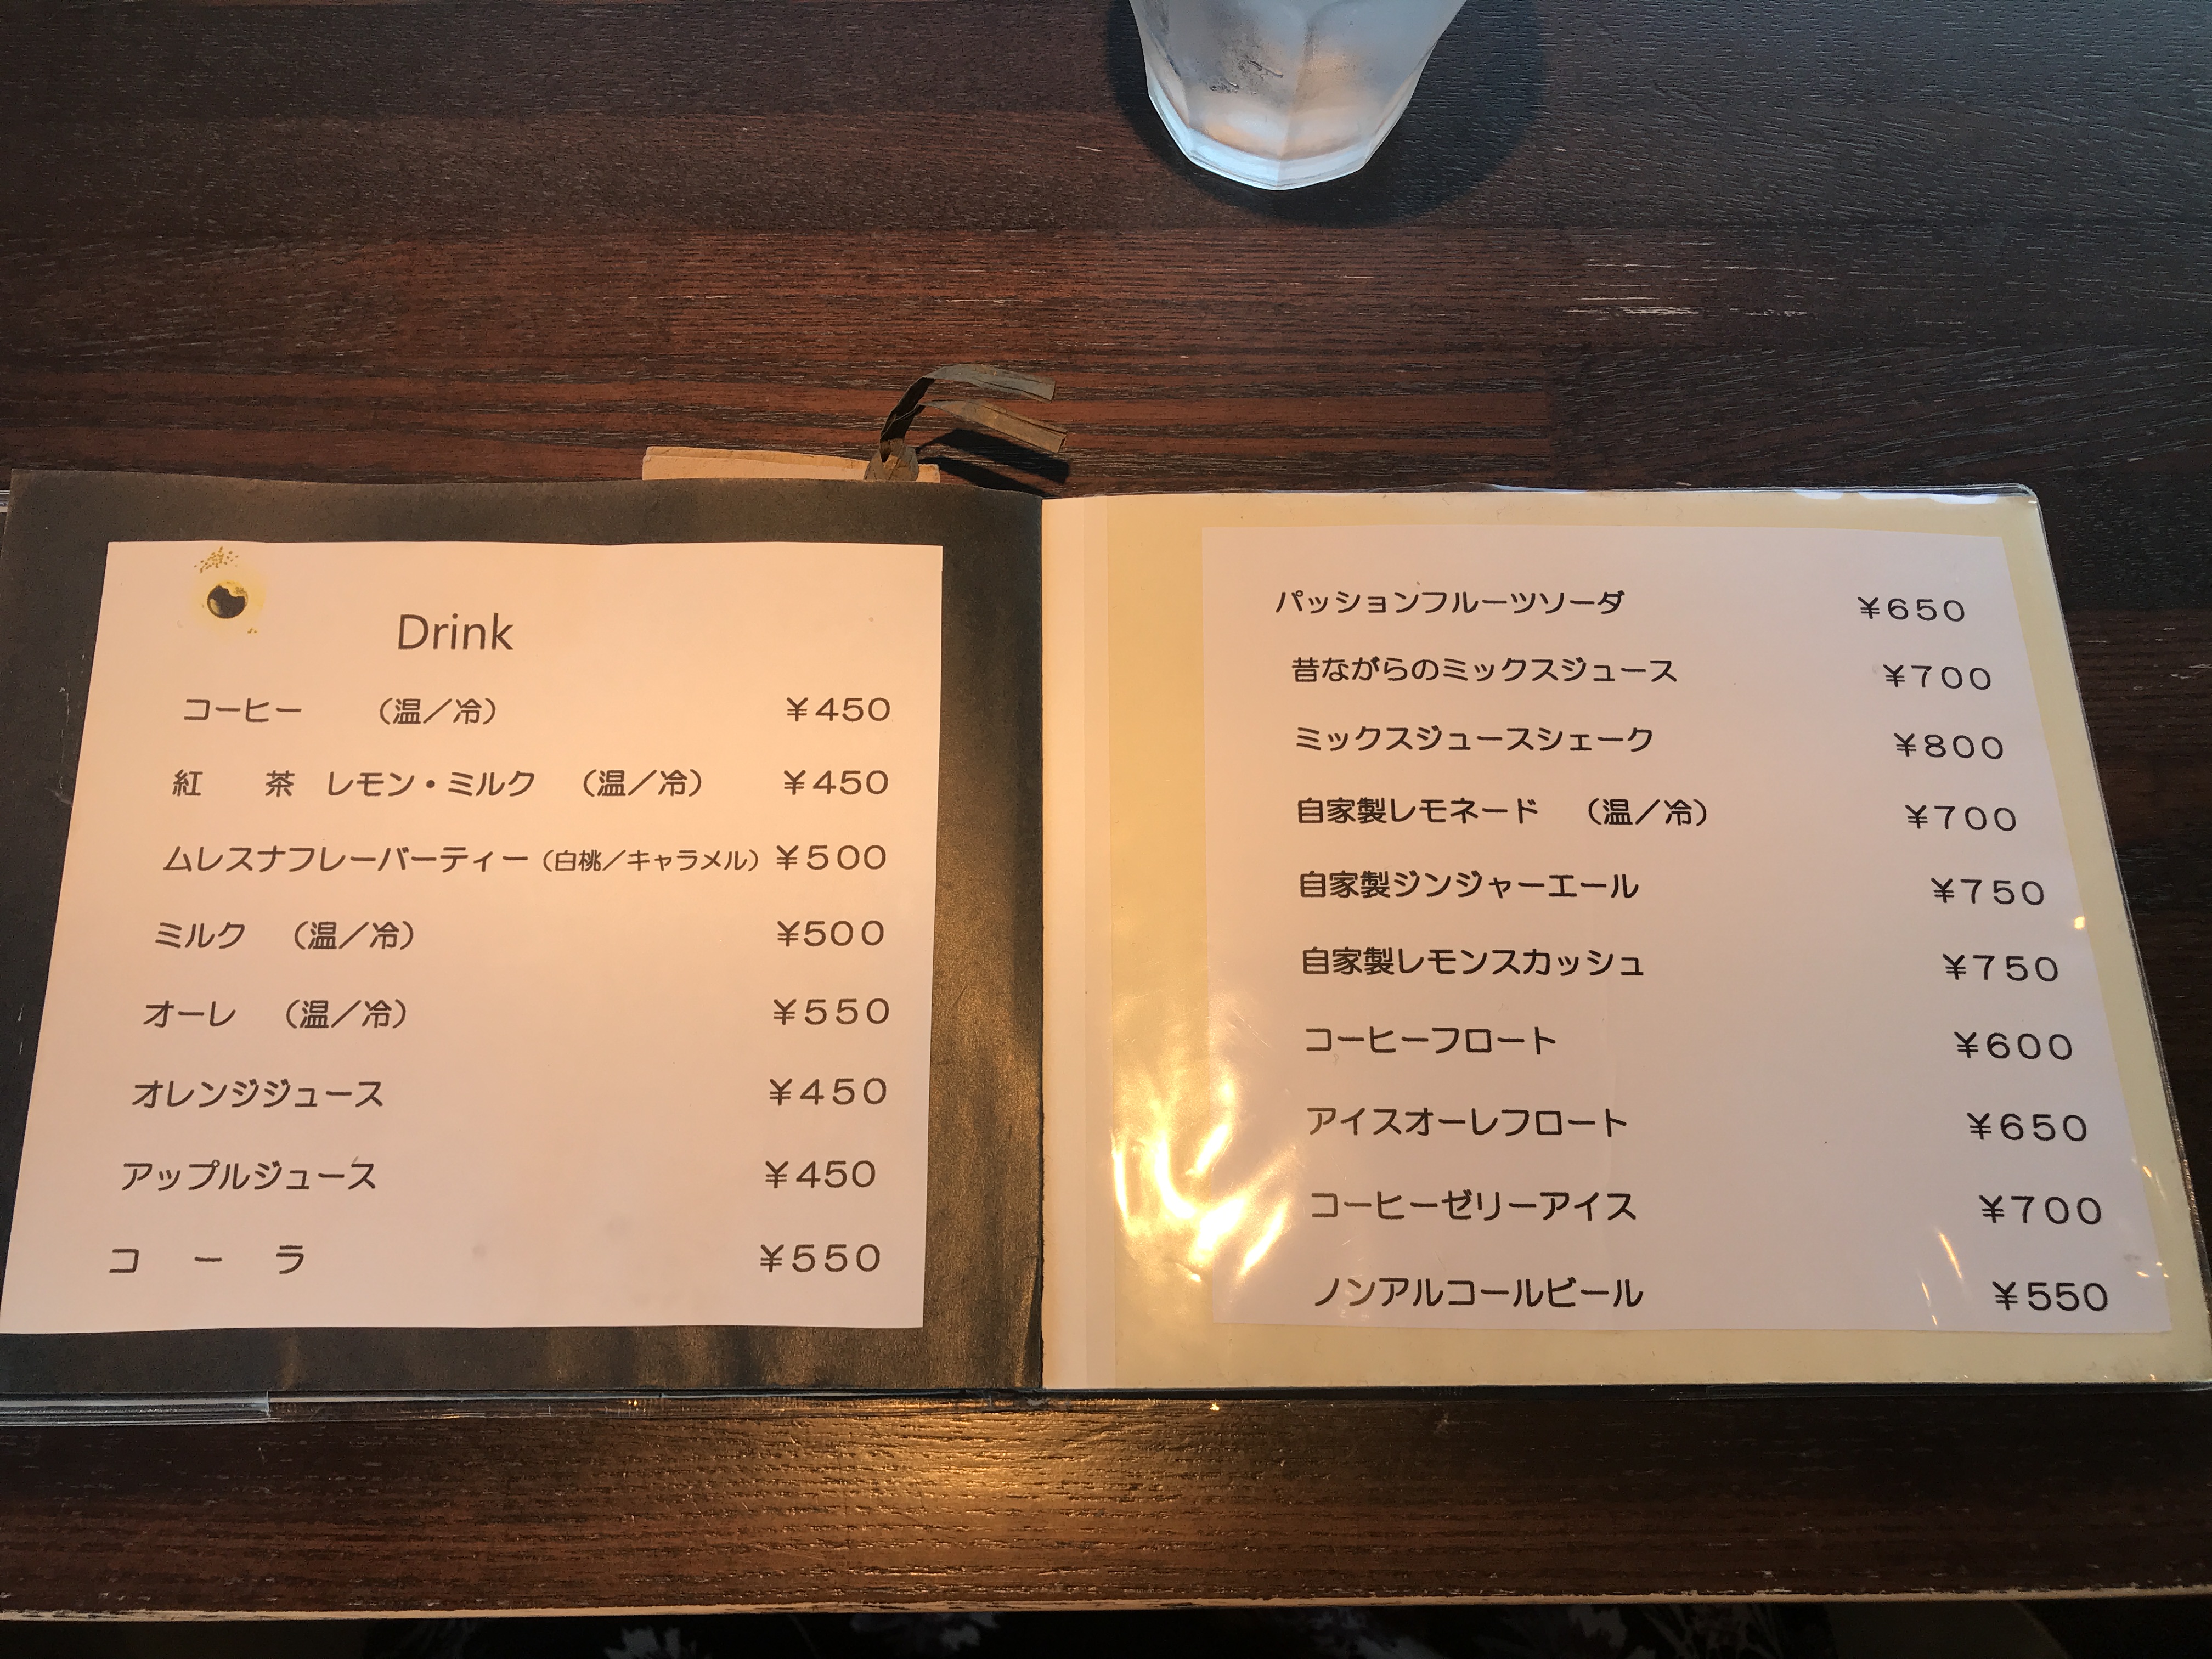 Drink
コーヒー　（温／冷）　¥450
紅　茶　レモン・ミルク　（温／冷）　¥450
ムレスナフレーバーティー（白桃／キャラメル）¥500
ミルク　（温／冷）　¥500
オーレ　（温／冷）　¥550
オレンジジュース　¥450
アップルジュース　¥450
コ　ー　ラ　¥550
パッションフルーツソーダ　¥650
昔ながらのミックスジュース　¥700
ミックスジュースシェーク　¥800
自家製レモネード　（温／冷）　¥700
自家製ジンジャーエール　¥750
自家製レモンスカッシュ　¥750
コーヒーフロート　¥600
アイスオーレフロート　¥650
コーヒーゼリーアイス　¥700
ノンアルコールビール　¥550